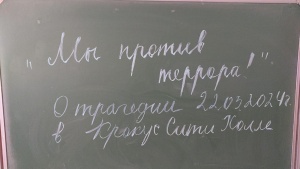 „Мы против
террора!".
О трагедии 22.03.2024г.
в Крокус Сити Холле